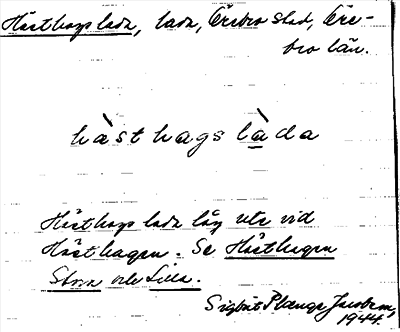 Hästhags lada, lada, Örebro stad, Öre-
bro län.
hàsthagslàda
Hästhags lada låg ute vid
Hästhagen. Se Hästhagen
Stora och Lilla.
Sigbrit Plænge Jacobson,
1944.